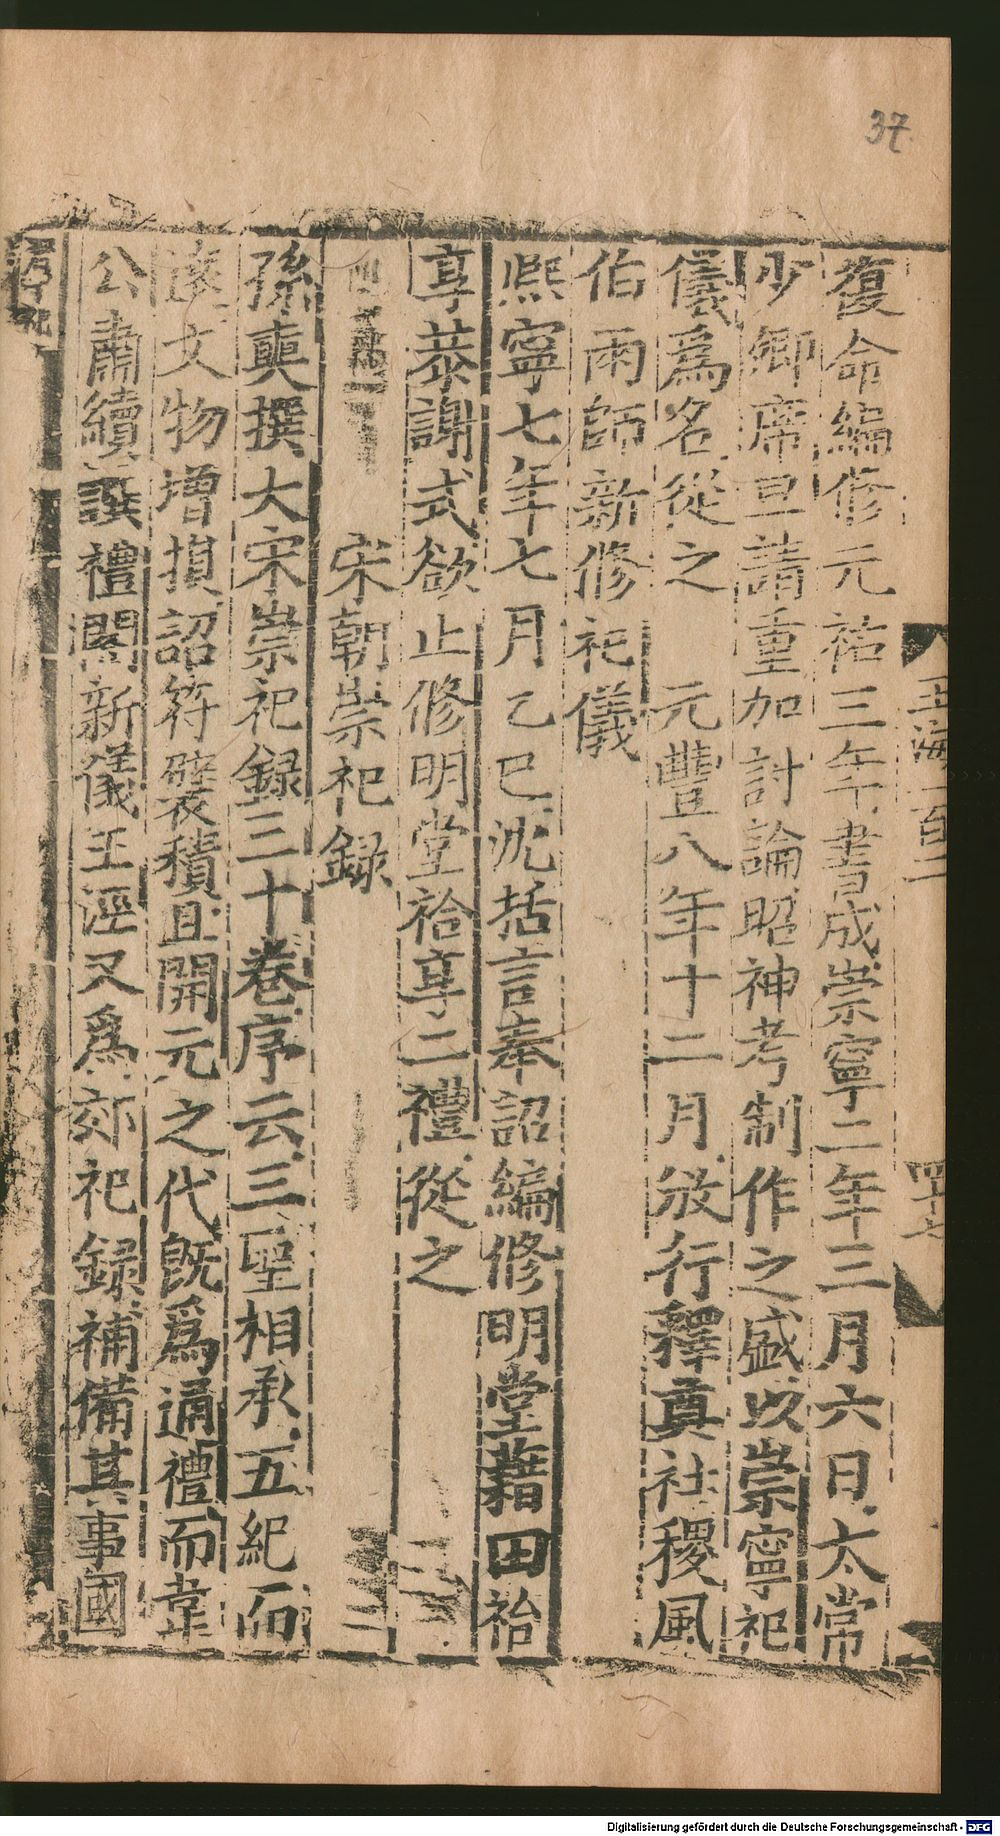 37
玉海一百二
四十七
復命編修元祐三年書成崇寧二年三月六日太常
少卿席旦請重加討論昭神考制作之盛以崇寧祀
儀爲名從之 元豐八年十二月放行釋奠社稷風
伯雨師新修祀儀
熙寧七年七月乙巳沈括言奉詔編修明堂藉田祫
享恭謝式欲止修明堂祫享二禮從之
宋朝崇祀録
孫奭撰大宋崇祀録三十卷序云三聖相承五紀而
遠文物增損詔符襞積且開元之代旣爲通禮而韋
公肅續譔禮閣新儀王涇又爲郊祀録補備其事國
Digitalisierung gefördert durch die Deutsche Forschungsgemeinschaft - DFG